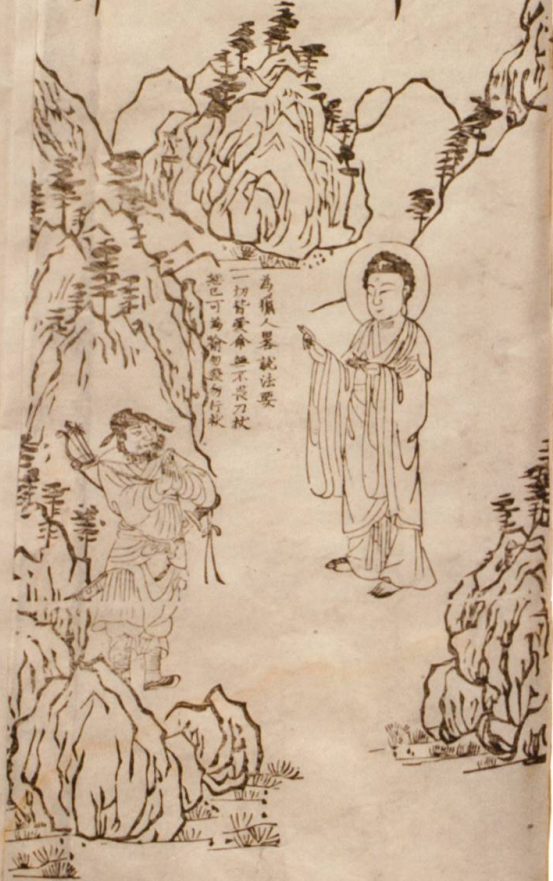 為獵人略說法要
一切皆愛命無不畏刀杖
恕己可為喻勿殺勿行杖